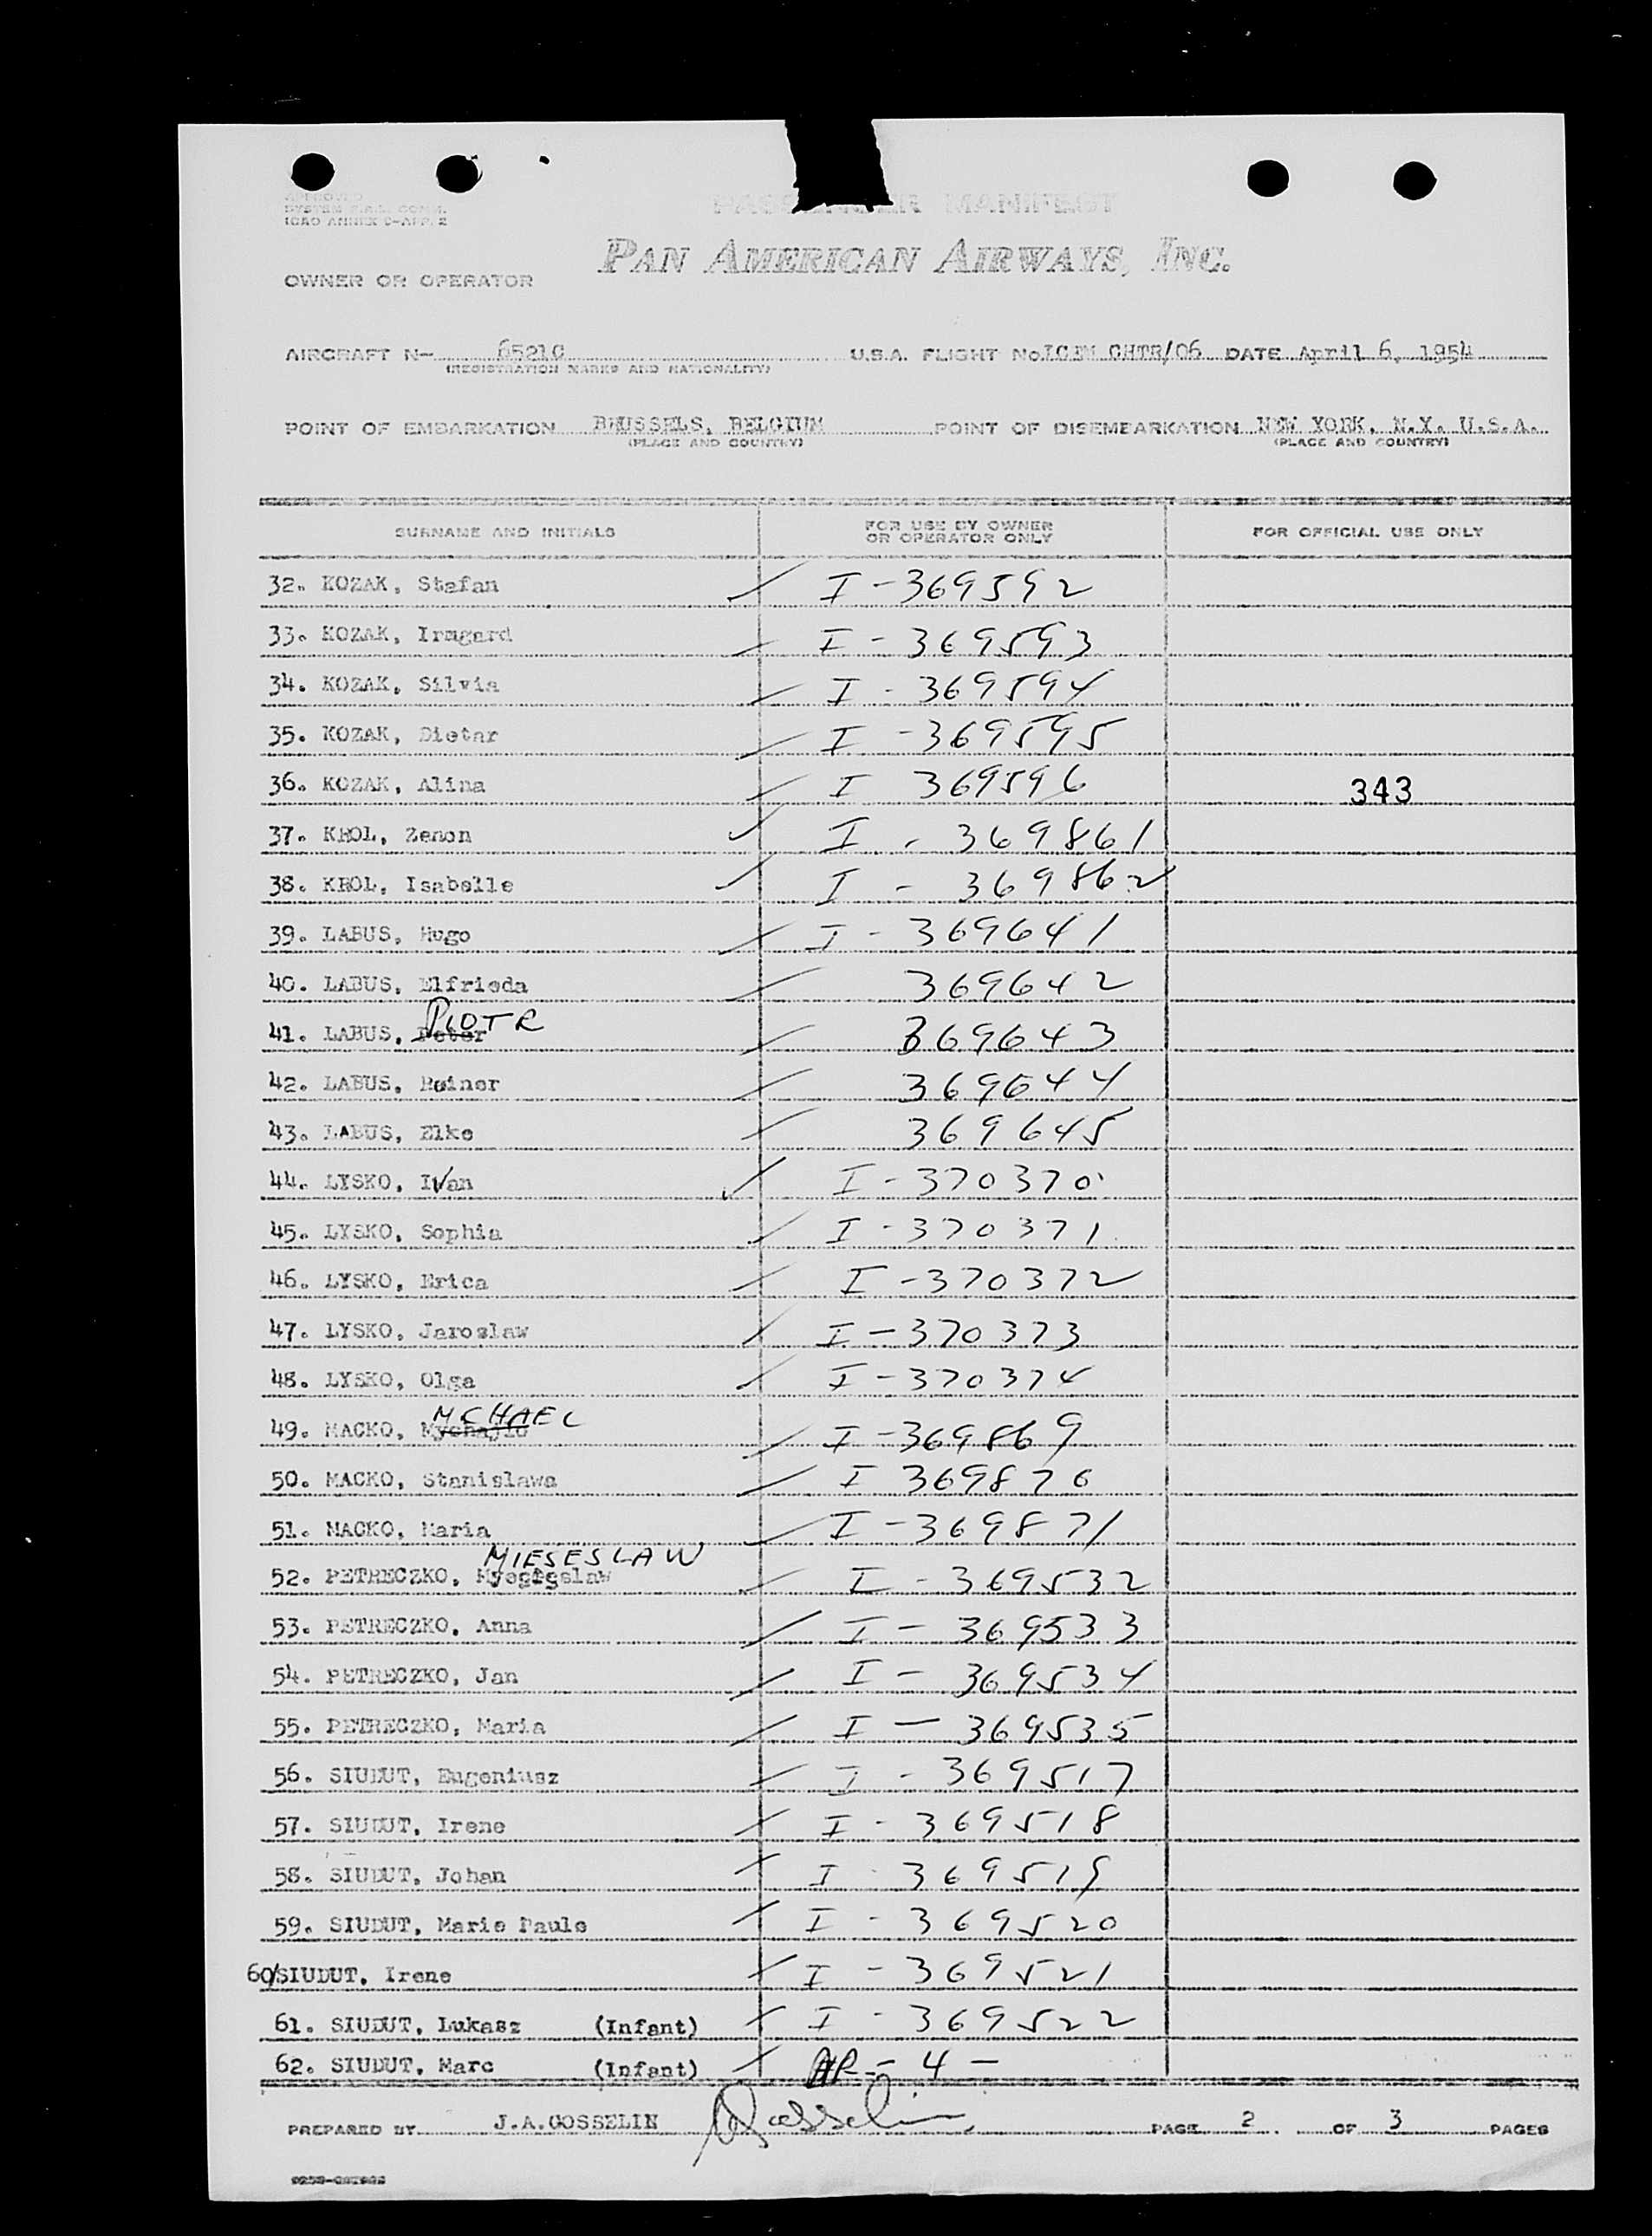 APPROVED
SYSTEM F.A.L. COMM.
ICAO ANNEX 9-APP. 2
PASSENGER MANIFEST
PAN AMERICAN AIRWAYS, INC.
OWNER OR OPERATOR
AIRCRAFT N- 6521C U.S.A. FLIGHT No. ICEM CHTR/06 DATE April 6, 1954
(REGISTRATION MARKS AND NATIONALITY)
POINT OF EMBARKATION BRUSSELS, BELGIUM POINT OF DISEMBARKATION NEW YORK, N.Y. U.S.A.
(PLACE AND COUNTRY) (PLACE AND COUNTRY)
SURNAME AND INITIALS FOR USE BY OWNER OR OPERATOR ONLY FOR OFFICIAL USE ONLY
32. KOZAK, Stefan I-369592
33. KOZAK, Irmgard I-369593
34. KOZAK, Silvia I-369594
35. KOZAK, Dietar I-369595
36. KOZAK, Alina I 369596 343
37. KROL, Zenon I-369861
38. KROL, Isabelle I-369862
39. LABUS, Hugo I-369641
40. LABUS, Elfrieda 369642
PIOTR
41. LABUS, Peter 369643
42. LABUS, Reiner 369644
43. LABUS, Elke 369645
44. LYSKO, Ivan I-370370
45. LYSKO, Sophia I-370371
46. LYSKO, Erica I-370372
47. LYSKO, Jaroslaw I-370373
48. LYSKO, Olga I-370374
MCHAEL
49. MACKO, Mychajlo I-369869
50. MACKO, Stanislawa I 369870
51. MACKO, Maria I-369871
MIESESLAW
52. PETRECZKO, I-369532
53. PETRECZKO, Anna I-369533
54. PETRECZKO, Jan I-369534
55. PETRECZKO, Maria I-369535
56. SIUDUT, Eugeniusz I-369517
57. SIUDUT, Irene I-369518
58. SIUDUT, Johan I-369519
59. SIUDUT, Marie Paule I-369520
60/SIUDUT, Irene I-369521
61. SIUDUT, Lukasz (Infant) I-369522
62. SIUDUT, Marc (Infant) AR-4-
PREPARED BY J.A.GOSSELIN Gosselin PAGE 2 OF 3 PAGES